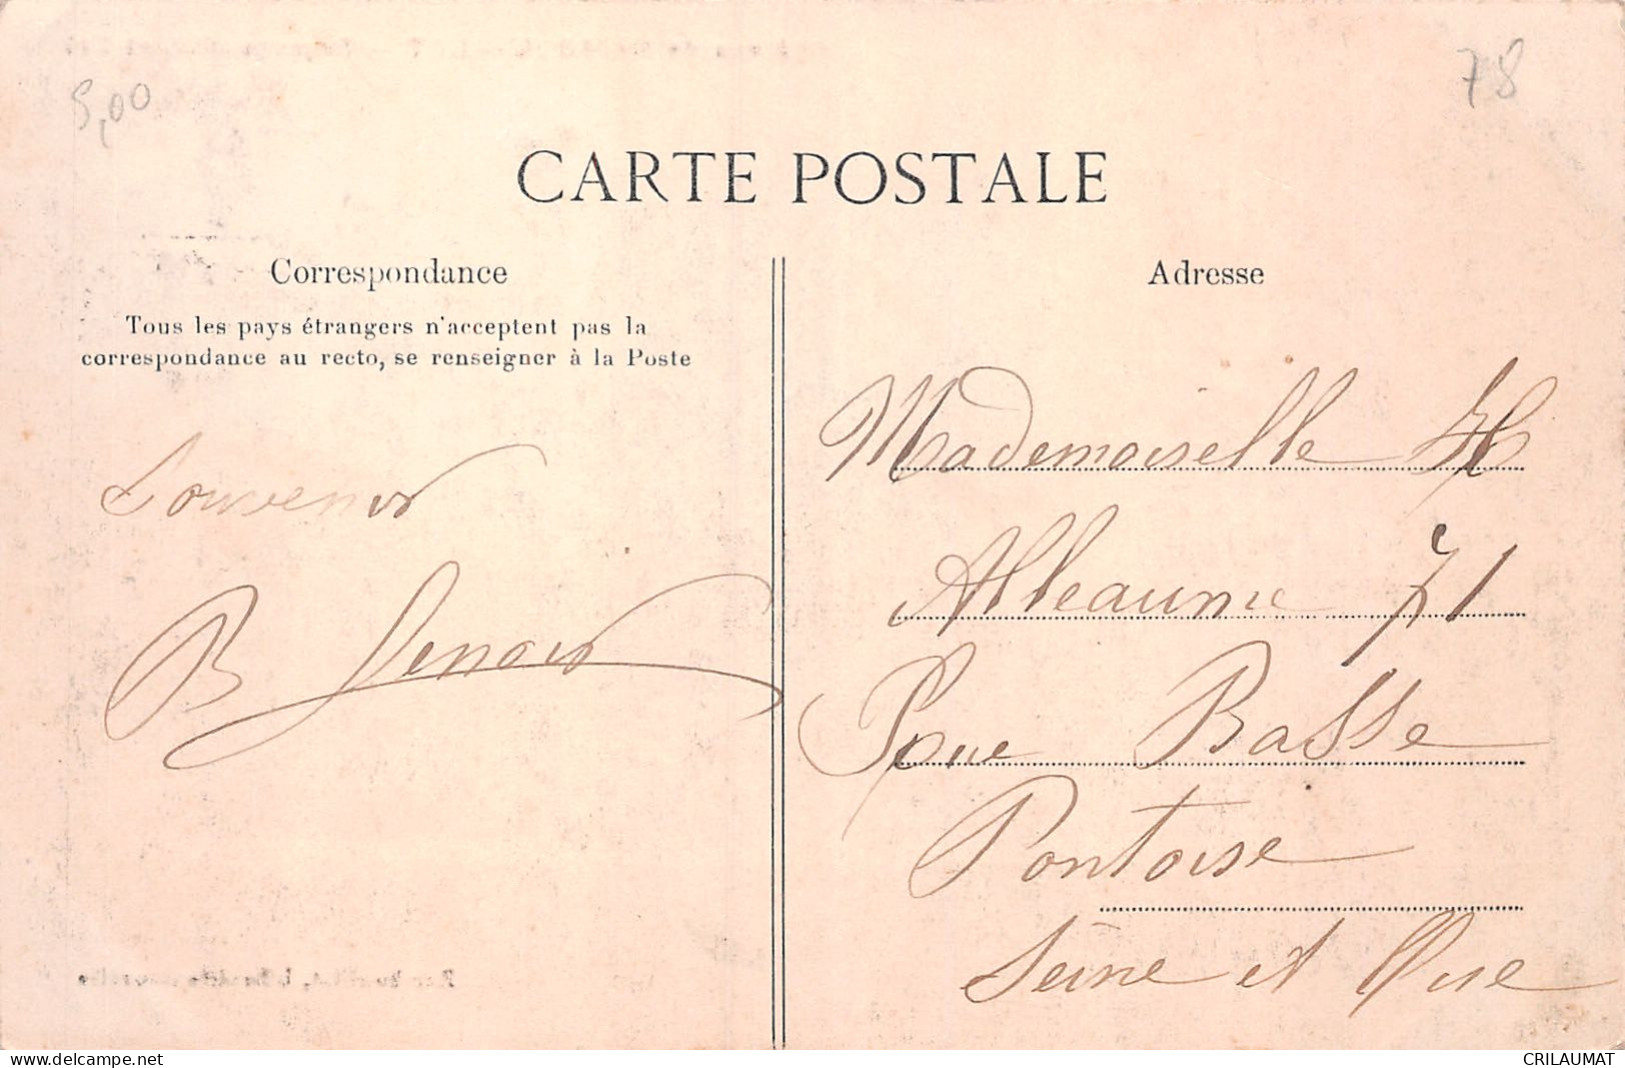 5,00
78
CARTE POSTALE
Correspondance
Tous les pays étrangers n'acceptent pas la
correspondance au recto, se renseigner à la Poste
Souvenir
B Lenoir
Adresse
Mademoiselle H
Alleaume 71
Rue Basse
Pontoise
Seine et Oise
www.delcampe.net
CRILAUMAT